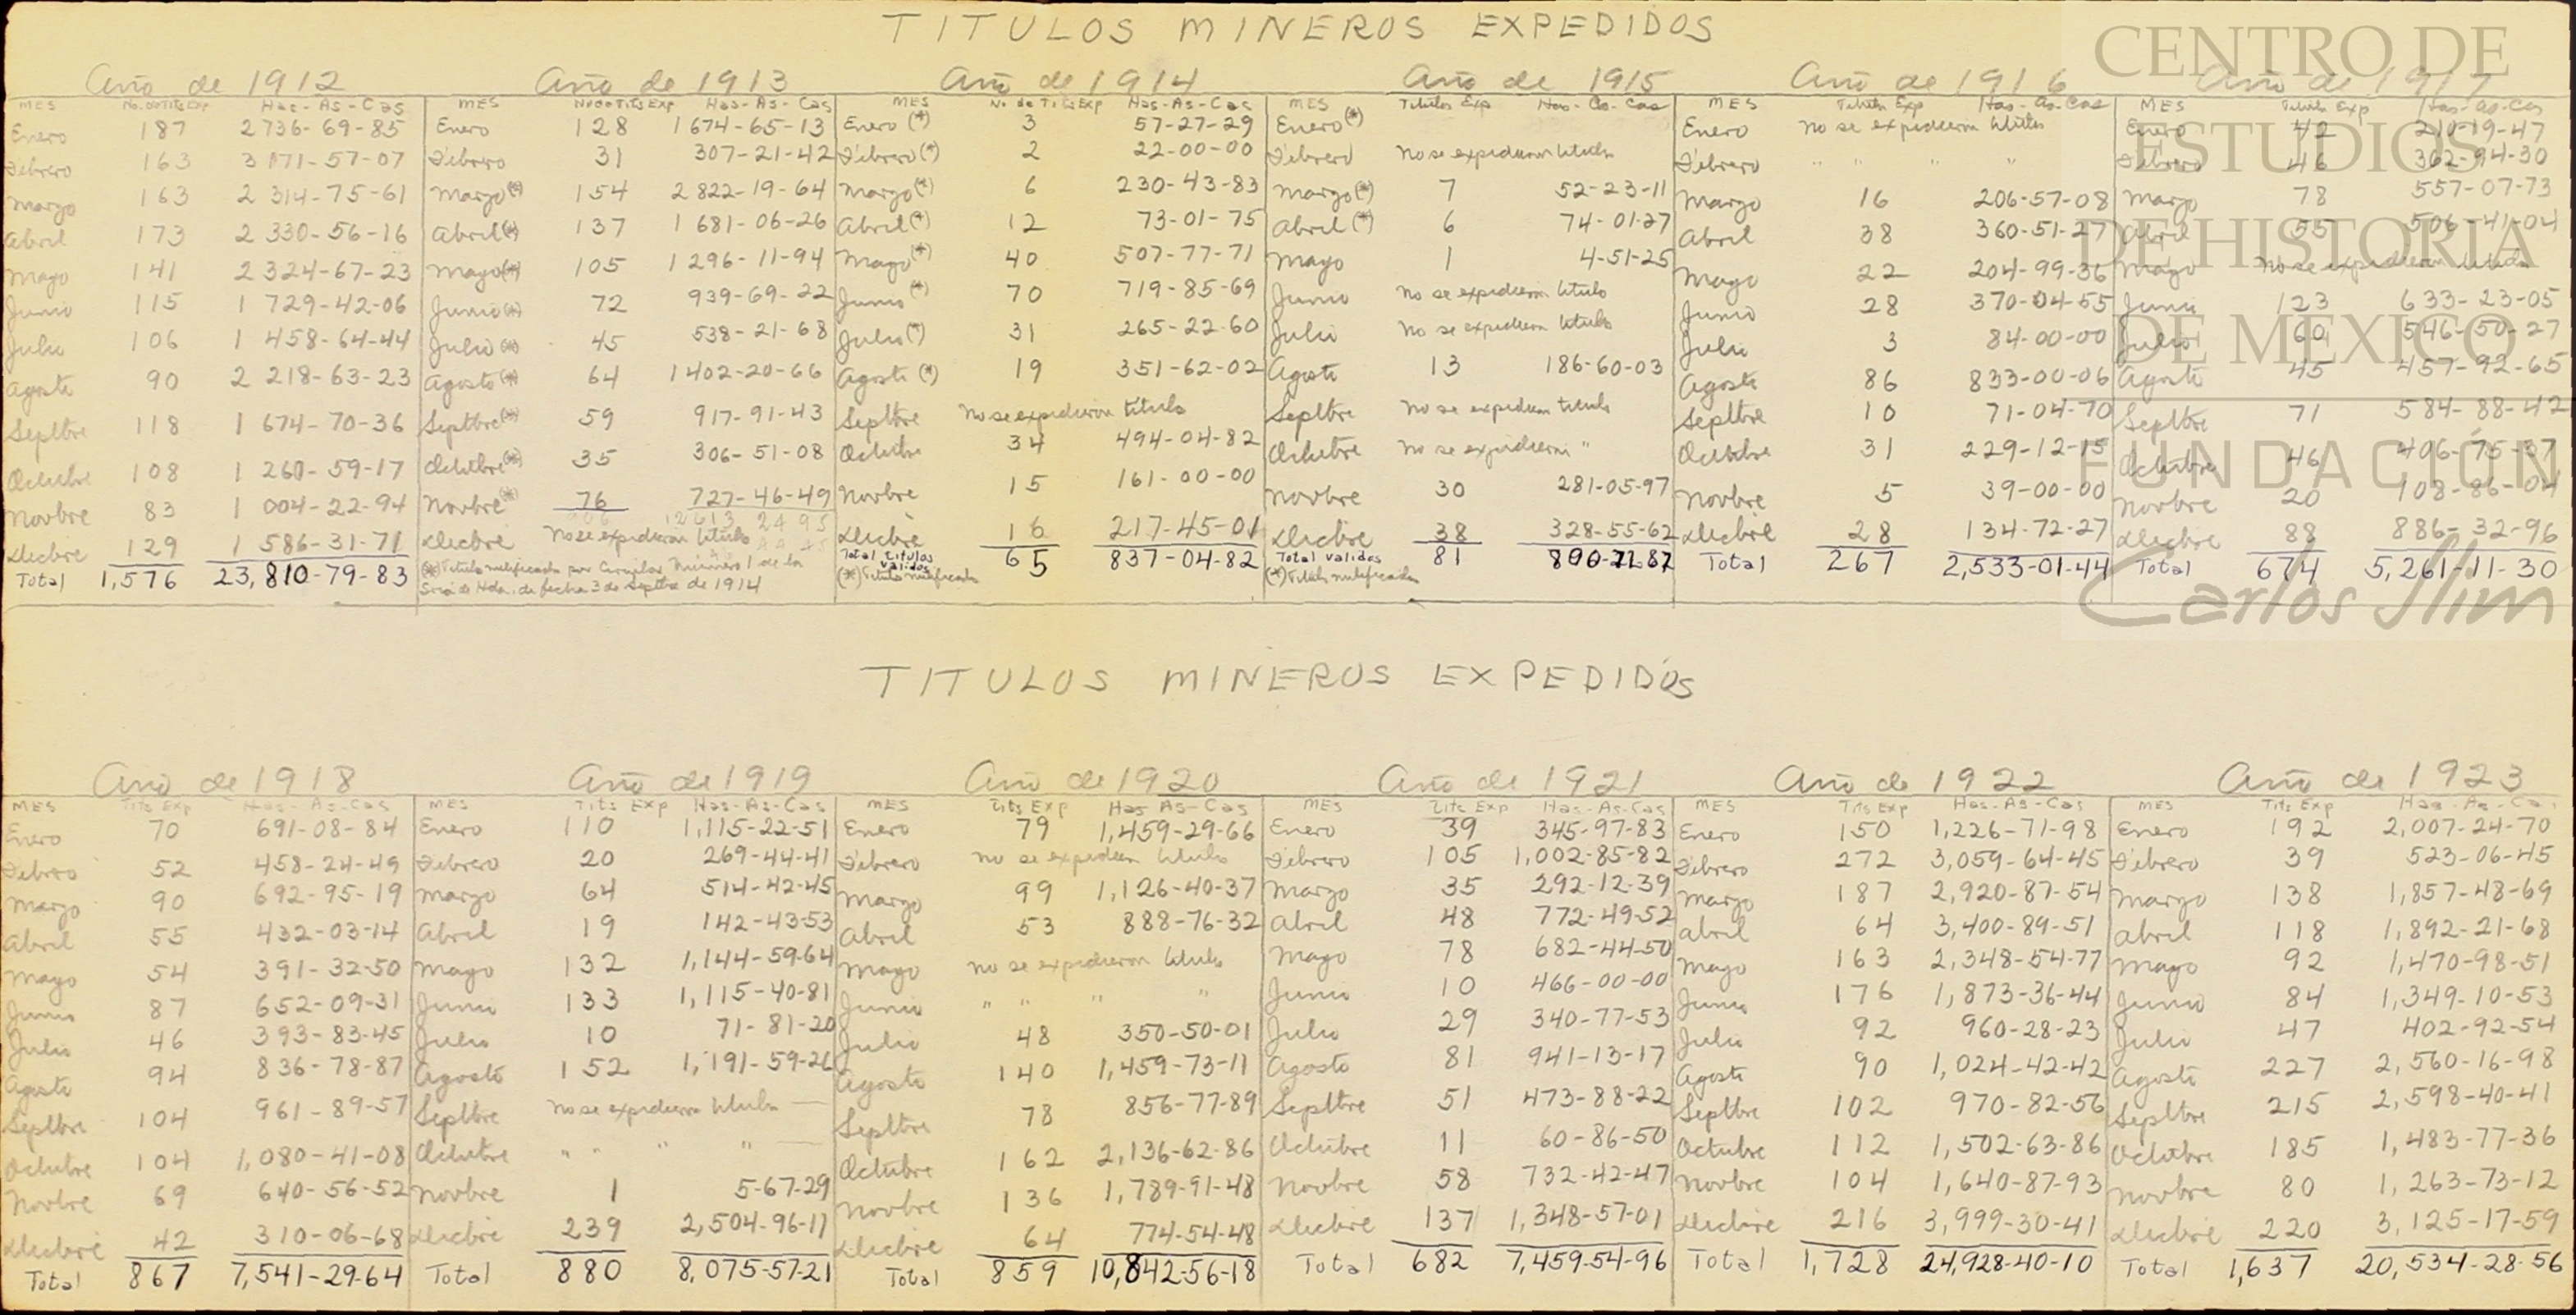 TITULOS MINEROS EXPEDIDOS
Año de 1912
MES No. de Tits Exp Has-As-Cas
Enero 187 2 736-69-85
Febrero 163 3 171-57-07
Marzo 163 2 314-75-61
Abril 173 2 330-56-16
Mayo 141 2 324-67-23
Junio 115 1 729-42-06
Julio 106 1 458-64-44
Agosto 90 2 218-63-23
Septbre 118 1 674-70-36
Octubre 108 1 260-59-17
Novbre 83 1 004-22-94
Dicbre 129 1 586-31-71
Total 1,576 23,810-79-83
Año de 1913
MES No de Tits Exp Has-As-Cas
Enero 128 1 674-65-13
Febrero 31 307-21-42
Marzo (*) 154 2 822-19-64
Abril (*) 137 1 681-06-26
Mayo (*) 105 1 296-11-94
Junio (*) 72 939-69-22
Julio (*) 45 538-21-68
Agosto (*) 64 1 402-20-66
Septbre (*) 59 917-91-43
Octubre (*) 35 306-51-08
Novbre (*) 76 727-46-49
906 12613 24 95
Dicbre No se expidieron titulos
(*) Titulos nulificados por Circular número 1 de la
Sria de Hda. de fecha 3 de Septbre de 1914
Año de 1914
MES No. de Tits Exp Has-As-Cas
Enero (*) 3 57-27-29
Febrero (*) 2 22-00-00
Marzo (*) 6 230-43-83
Abril (*) 12 73-01-75
Mayo (*) 40 507-77-71
Junio (*) 70 719-85-69
Julio (*) 31 265-22-60
Agosto (*) 19 351-62-02
Septbre No se expidieron titulos
Octubre 34 494-04-82
Novbre 15 161-00-00
Dicbre 16 217-45-01
Total titulos validos 65 837-04-82
(*) Titulos nulificados
Año de 1915
MES Titulos Exp Has-As-Cas
Enero (*)
Febrero No se expidieron titulos
Marzo (*) 7 52-23-11
Abril (*) 6 74-01-27
Mayo 1 4-51-25
Junio No se expidieron titulos
Julio No se expidieron titulos
Agosto 13 186-60-03
Septbre No se expidieron titulos
Octubre No se expidieron "
Novbre 30 281-05-97
Dicbre 38 328-55-62
Total validos 81 800-72-87
(*) Titulos nulificados
Año de 1916
MES Titulos Exp Has-As-Cas
Enero No se expidieron titulos
Febrero " " " "
Marzo 16 206-57-08
Abril 38 360-51-27
Mayo 22 204-99-36
Junio 28 370-04-55
Julio 3 84-00-00
Agosto 86 833-00-06
Septbre 10 71-04-70
Octubre 31 229-12-15
Novbre 5 39-00-00
Dicbre 28 134-72-27
Total 267 2,533-01-44
Año de 1917
MES Titulos Exp Has-As-Cas
Enero 42 210-19-47
Febrero 46 362-94-30
Marzo 78 557-07-73
Abril 55 506-41-04
Mayo No se expidieron titulos
Junio 123 633-23-05
Julio 60 546-50-27
Agosto 45 457-92-65
Septbre 71 584-88-42
Octubre 46 406-75-37
Novbre 20 108-86-04
Dicbre 88 886-32-96
Total 674 5,261-11-30
CENTRO DE
ESTUDIOS
DE HISTORIA
DE MEXICO
FUNDACIÓN
Carlos Slim
TITULOS MINEROS EXPEDIDOS
Año de 1918
MES Tits Exp Has-As-Cas
Enero 70 691-08-84
Febrero 52 458-24-49
Marzo 90 692-95-19
Abril 55 432-03-14
Mayo 54 391-32-50
Junio 87 652-09-31
Julio 46 393-83-45
Agosto 94 836-78-87
Septbre 104 961-89-57
Octubre 104 1,080-41-08
Novbre 69 640-56-52
Dicbre 42 310-06-68
Total 867 7,541-29-64
Año de 1919
MES Tits Exp Has-As-Cas
Enero 110 1,115-22-51
Febrero 20 269-44-41
Marzo 64 514-42-45
Abril 19 142-43-53
Mayo 132 1,144-59-64
Junio 133 1,115-40-81
Julio 10 71-81-20
Agosto 152 1,191-59-26
Septbre No se expidieron titulos —
Octubre " " " " —
Novbre 1 5-67-29
Dicbre 239 2,504-96-11
Total 880 8,075-57-21
Año de 1920
MES Tits Exp Has-As-Cas
Enero 79 1,459-29-66
Febrero No se expidieron titulos
Marzo 99 1,126-40-37
Abril 53 888-76-32
Mayo No se expidieron titulos
Junio " " " "
Julio 48 350-50-01
Agosto 140 1,459-73-11
Septbre 78 856-77-89
Octubre 162 2,136-62-86
Novbre 136 1,789-91-48
Dicbre 64 774-54-48
Total 859 10,842-56-18
Año de 1921
MES Tits Exp Has-As-Cas
Enero 39 345-97-83
Febrero 105 1,002-85-82
Marzo 35 292-12-39
Abril 48 772-49-52
Mayo 78 682-44-50
Junio 10 466-00-00
Julio 29 340-77-53
Agosto 81 941-13-17
Septbre 51 473-88-22
Octubre 11 60-86-50
Novbre 58 732-42-47
Dicbre 137 1,348-57-01
Total 682 7,459-54-96
Año de 1922
MES Tits Exp Has-As-Cas
Enero 150 1,226-71-98
Febrero 272 3,059-64-45
Marzo 187 2,920-87-54
Abril 64 3,400-89-51
Mayo 163 2,348-54-77
Junio 176 1,873-36-44
Julio 92 960-28-23
Agosto 90 1,024-42-42
Septbre 102 970-82-56
Octubre 112 1,502-63-86
Novbre 104 1,640-87-93
Dicbre 216 3,999-30-41
Total 1,728 24,928-40-10
Año de 1923
MES Tits Exp Has-As-Cas
Enero 192 2,007-24-70
Febrero 39 523-06-45
Marzo 138 1,857-48-69
Abril 118 1,892-21-68
Mayo 92 1,470-98-51
Junio 84 1,349-10-53
Julio 47 402-92-54
Agosto 227 2,560-16-98
Septbre 215 2,598-40-41
Octubre 185 1,483-77-36
Novbre 80 1,263-73-12
Dicbre 220 3,125-17-59
Total 1,637 20,534-28-56